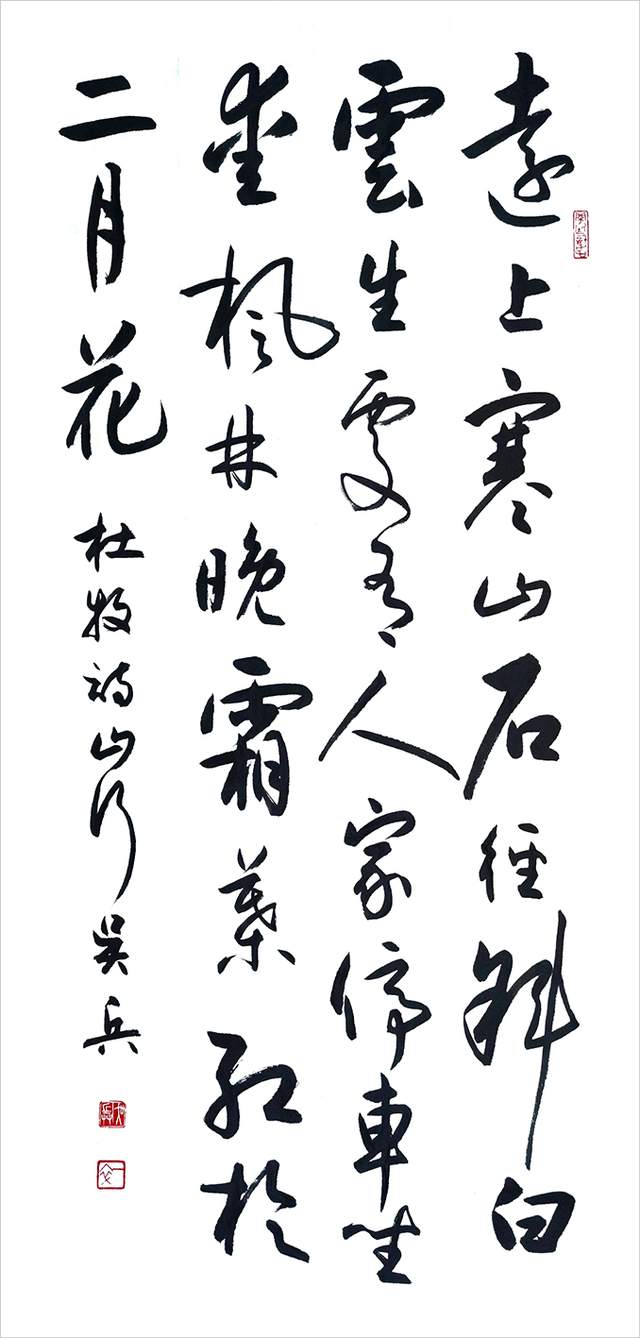 遠上寒山石径斜白
雲生處有人家停車坐
愛楓林晚霜葉紅於
二月花
杜牧詩山行吳兵